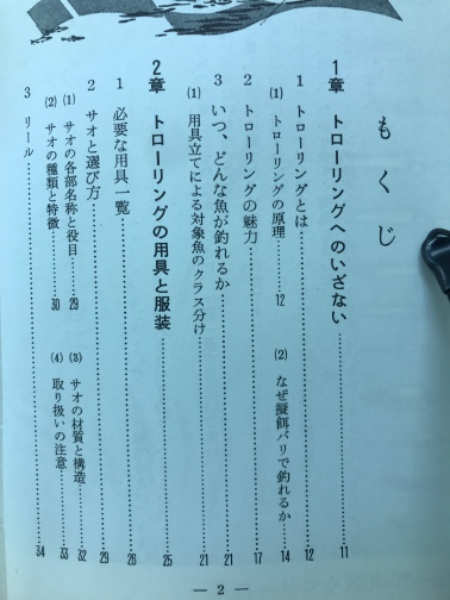 もくじ
1章 トローリングへのいざない……11
1 トローリングとは……12
(1) トローリングの原理……12 (2) なぜ擬餌バリで釣れるか……14
2 トローリングの魅力……17
3 いつ、どんな魚が釣れるか……21
(1) 用具立てによる対象魚のクラス分け……21
2章 トローリングの用具と服装……25
1 必要な用具一覧……26
2 サオと選び方……29
(1) サオの各部名称と役目……29 (3) サオの材質と構造……32
(2) サオの種類と特徴……30 (4) 取り扱いの注意……33
3 リール……34
— 2 —